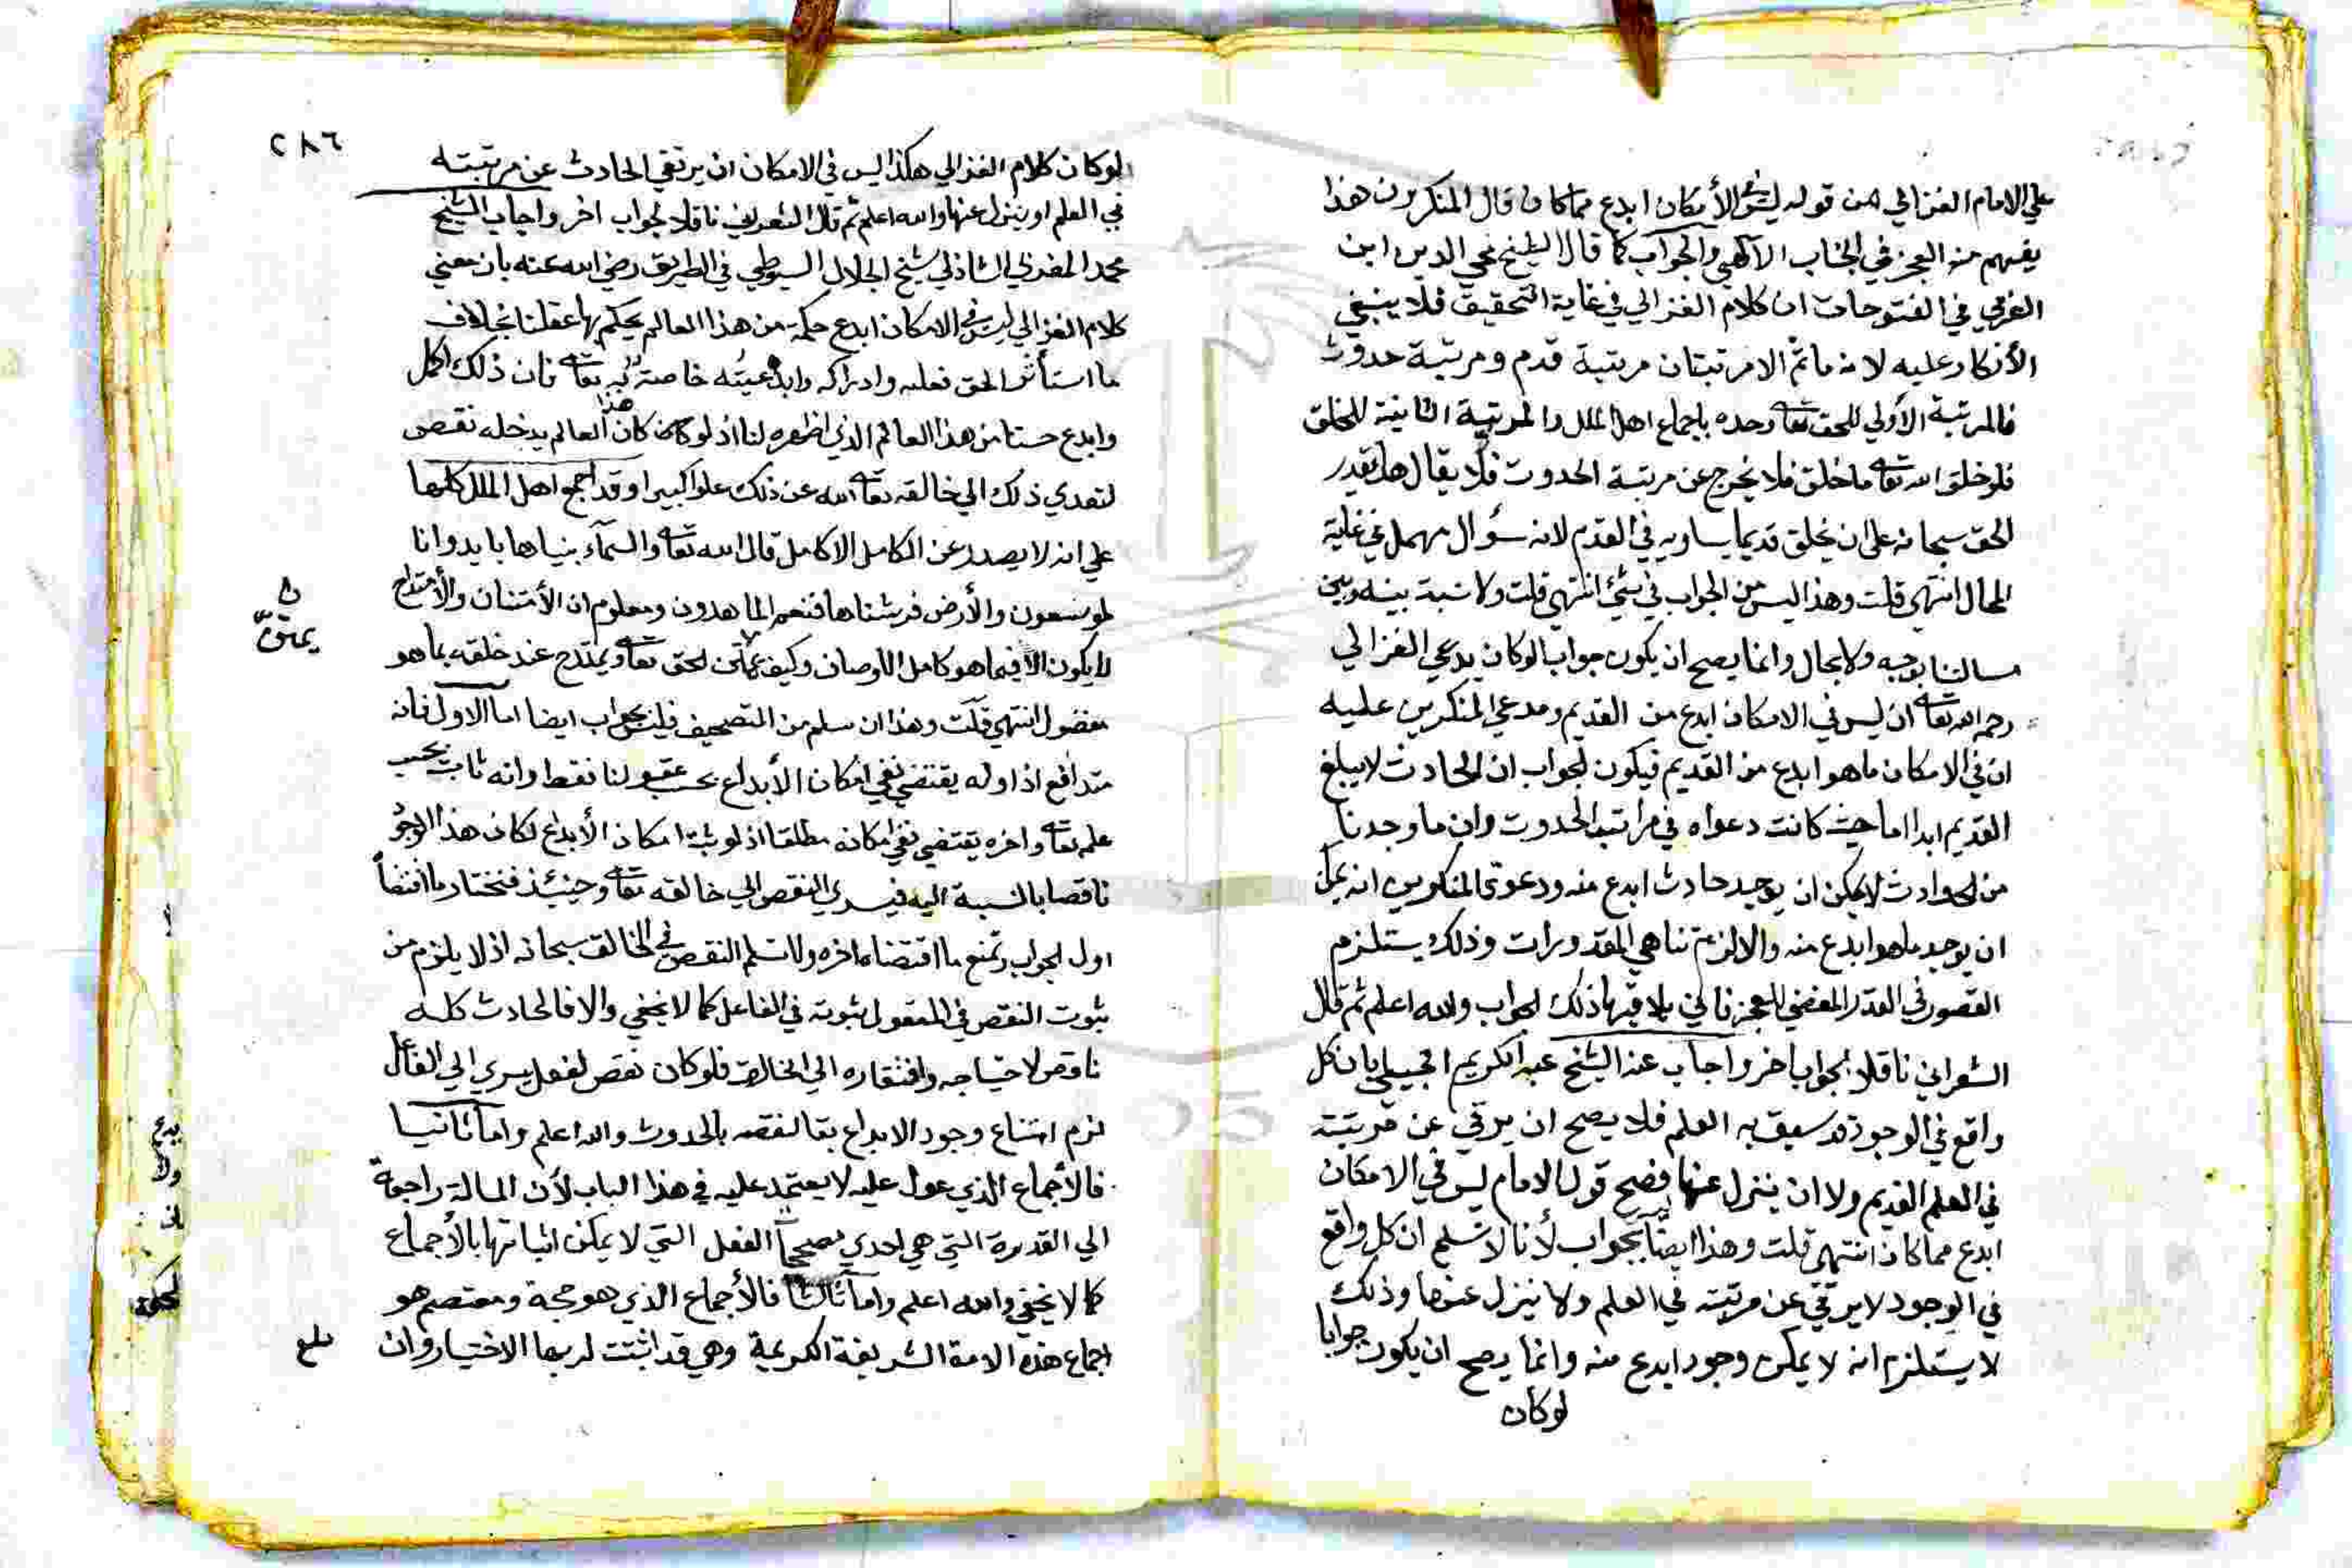 علي الامام الغزالي من قوله ليس في الأمكان ابدع مما كان قال المنكرون هذا
يفهم منه العجز في الجناب الآلهي والجواب كما قال الشيخ محي الدين ابن
العربي في الفتوحات ان كلام الغزالي في غاية التحقيق فلا ينبغي
الأنكار عليه لانه ماثم الا مرتبتان مرتبة قدم ومرتبة حدوث
فالمرتبة الأولي للحق تعالى وحده باجماع اهل الملل والمرتبة الثانية للخلق
فلو خلق الله تعالى ما خلق فلا يخرج عن مرتبة الحدوث فلا يقال هل يقدر
الحق سبحانه على ان يخلق قديما يساويه في القدم لانه سؤال مهمل في غاية
المحال انتهى قلت وهذا ليس من الجواب في شئ انتهى قلت ولا نسبة بينه وبين
مسالتنا بوجه ولا بحال وانما يصح ان يكون جوابا لو كان يدعي الغزالي
رحمه الله تعالى ان ليس في الامكان ابدع من القديم ومدعي المنكرين عليه
ان في الامكان ما هو ابدع من القديم فيكون الجواب ان الحادث لا يبلغ
القديم ابدا اما حيث كانت دعواه في مراتب الحدوث وان ما وجد نا
من الحوادث لا يمكن ان يوجد حادث ابدع منه ودعوى المنكرين انه يمكن
ان يوجد ما هو ابدع منه والا لزم تناهي المقدورات وذلك يستلزم
القصور في القدر المفضي للعجز فاني يلاقيها ذلك الجواب والله اعلم ثم قال
الشعراني ناقلا لجواب اخر واجاب عنه الشيخ عبد الكريم الجيلي بان كل
واقع في الوجود قد سبق به العلم فلا يصح ان يرقي عن مرتبته
في العلم القديم ولا ان ينزل عنها فصح قول الامام ليس في الامكان
ابدع مما كان انتهى قلت وهذا ايضا بجواب لأنا لا نسلم ان كل واقع
في الوجود لا يرتقي عن مرتبته في العلم ولا ينزل عنها وذلك
لا يستلزم انه لا يمكن وجود ابدع منه وانما يصح ان يكون جوابا
لو كان
٢٨٦
لو كان كلام الغزالي هكذا ليس في الامكان ان يرتقي الحادث عن مرتبته
في العلم او ينزل عنها والله اعلم ثم قال الشعراني ناقلا لجواب اخر واجاب الشيخ
محمد المغربي الشاذلي شيخ الجلال السيوطي في الطريق رضي الله عنه بان معني
كلام الغزالي ليس في الامكان ابدع حكمة من هذا العالم يحكم بها عقلنا بخلاف
ما استأثر الحق بعلمه وادراكه وابدعيته خاصة به تعالى فان ذلك اكمل
وابدع حسنا من هذا العالم الذي اظهره لنا اذ لو كان هذا العالم يدخله نقص
لتعدي ذلك الي خالقه تعالى الله عن ذلك علوا كبيرا وقد اجمع اهل الملل كلها
علي انه لا يصدر عن الكامل الا كامل قال الله تعالى والسمآء بنيناها بايد وانا
لموسعون والأرض فرشناها فنعم الماهدون ومعلوم ان الأمتنان والأمتداح
لا يكون الا فيما هو كامل الاوصاف وكيف يمتن الحق تعالى ويمتدح عند خلقه بما هو
مفضول انتهي قلت وهذا ان سلم من التصحيف فليس بجواب ايضا اما الاول فانه
متدافع اذ اوله يقتضي نفي امكان الأبداع بحسب عقولنا فقط وانه ثابت بحسب
علمه تعالى واخره يقتضي نفي امكانه مطلقا اذ لو ثبت امكان الأبداع لكان هذا الوجود
ناقصا بالنسبة اليه فيسري النقص الي خالقه تعالى وحينئذ فنختار ما اقتضاه
اول الجواب ونمنع ما اقتضاه اخره ولا نسلم النقص في الخالق سبحانه اذ لا يلزم من
ثبوت النقص في المفعول ثبوته في الفاعل كما لا يخفي والا فالحادث كله
ناقص لاحتياجه وافتقاره الي الخالق فلو كان نقص الفعل يسري الي الفاعل
لزم امتناع وجود الابداع بقا لنقصه بالحدوث والله اعلم واما ثانيا
فالأجماع الذي عول عليه لا يعتمد عليه في هذا الباب لأن المسالة راجعة
الي القدرة التي هي احدي مصححات الفعل التي لا يمكن اثباتها بالأجماع
كما لا يخفي والله اعلم واما ثالثا فالأجماع الذي هو حجة ومعتصم هو
اجماع هذه الامة الشريفة الكريمة وهي قد اثبتت لربها الاختيار وان